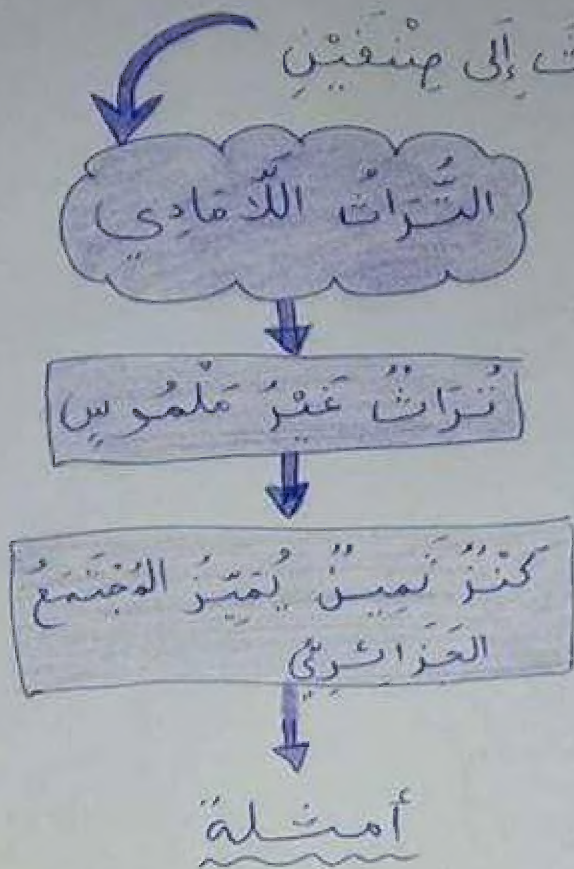 إِلَى صِنْفَيْنِ
التُّرَاثُ اللَّامَادِي
تُرَاثٌ غَيْرُ مَلْمُوسٍ
كَنْزٌ ثَمِينٌ يُمَيِّزُ المُجْتَمَعُ
الجَزَائِرِيُّ
أمثلة